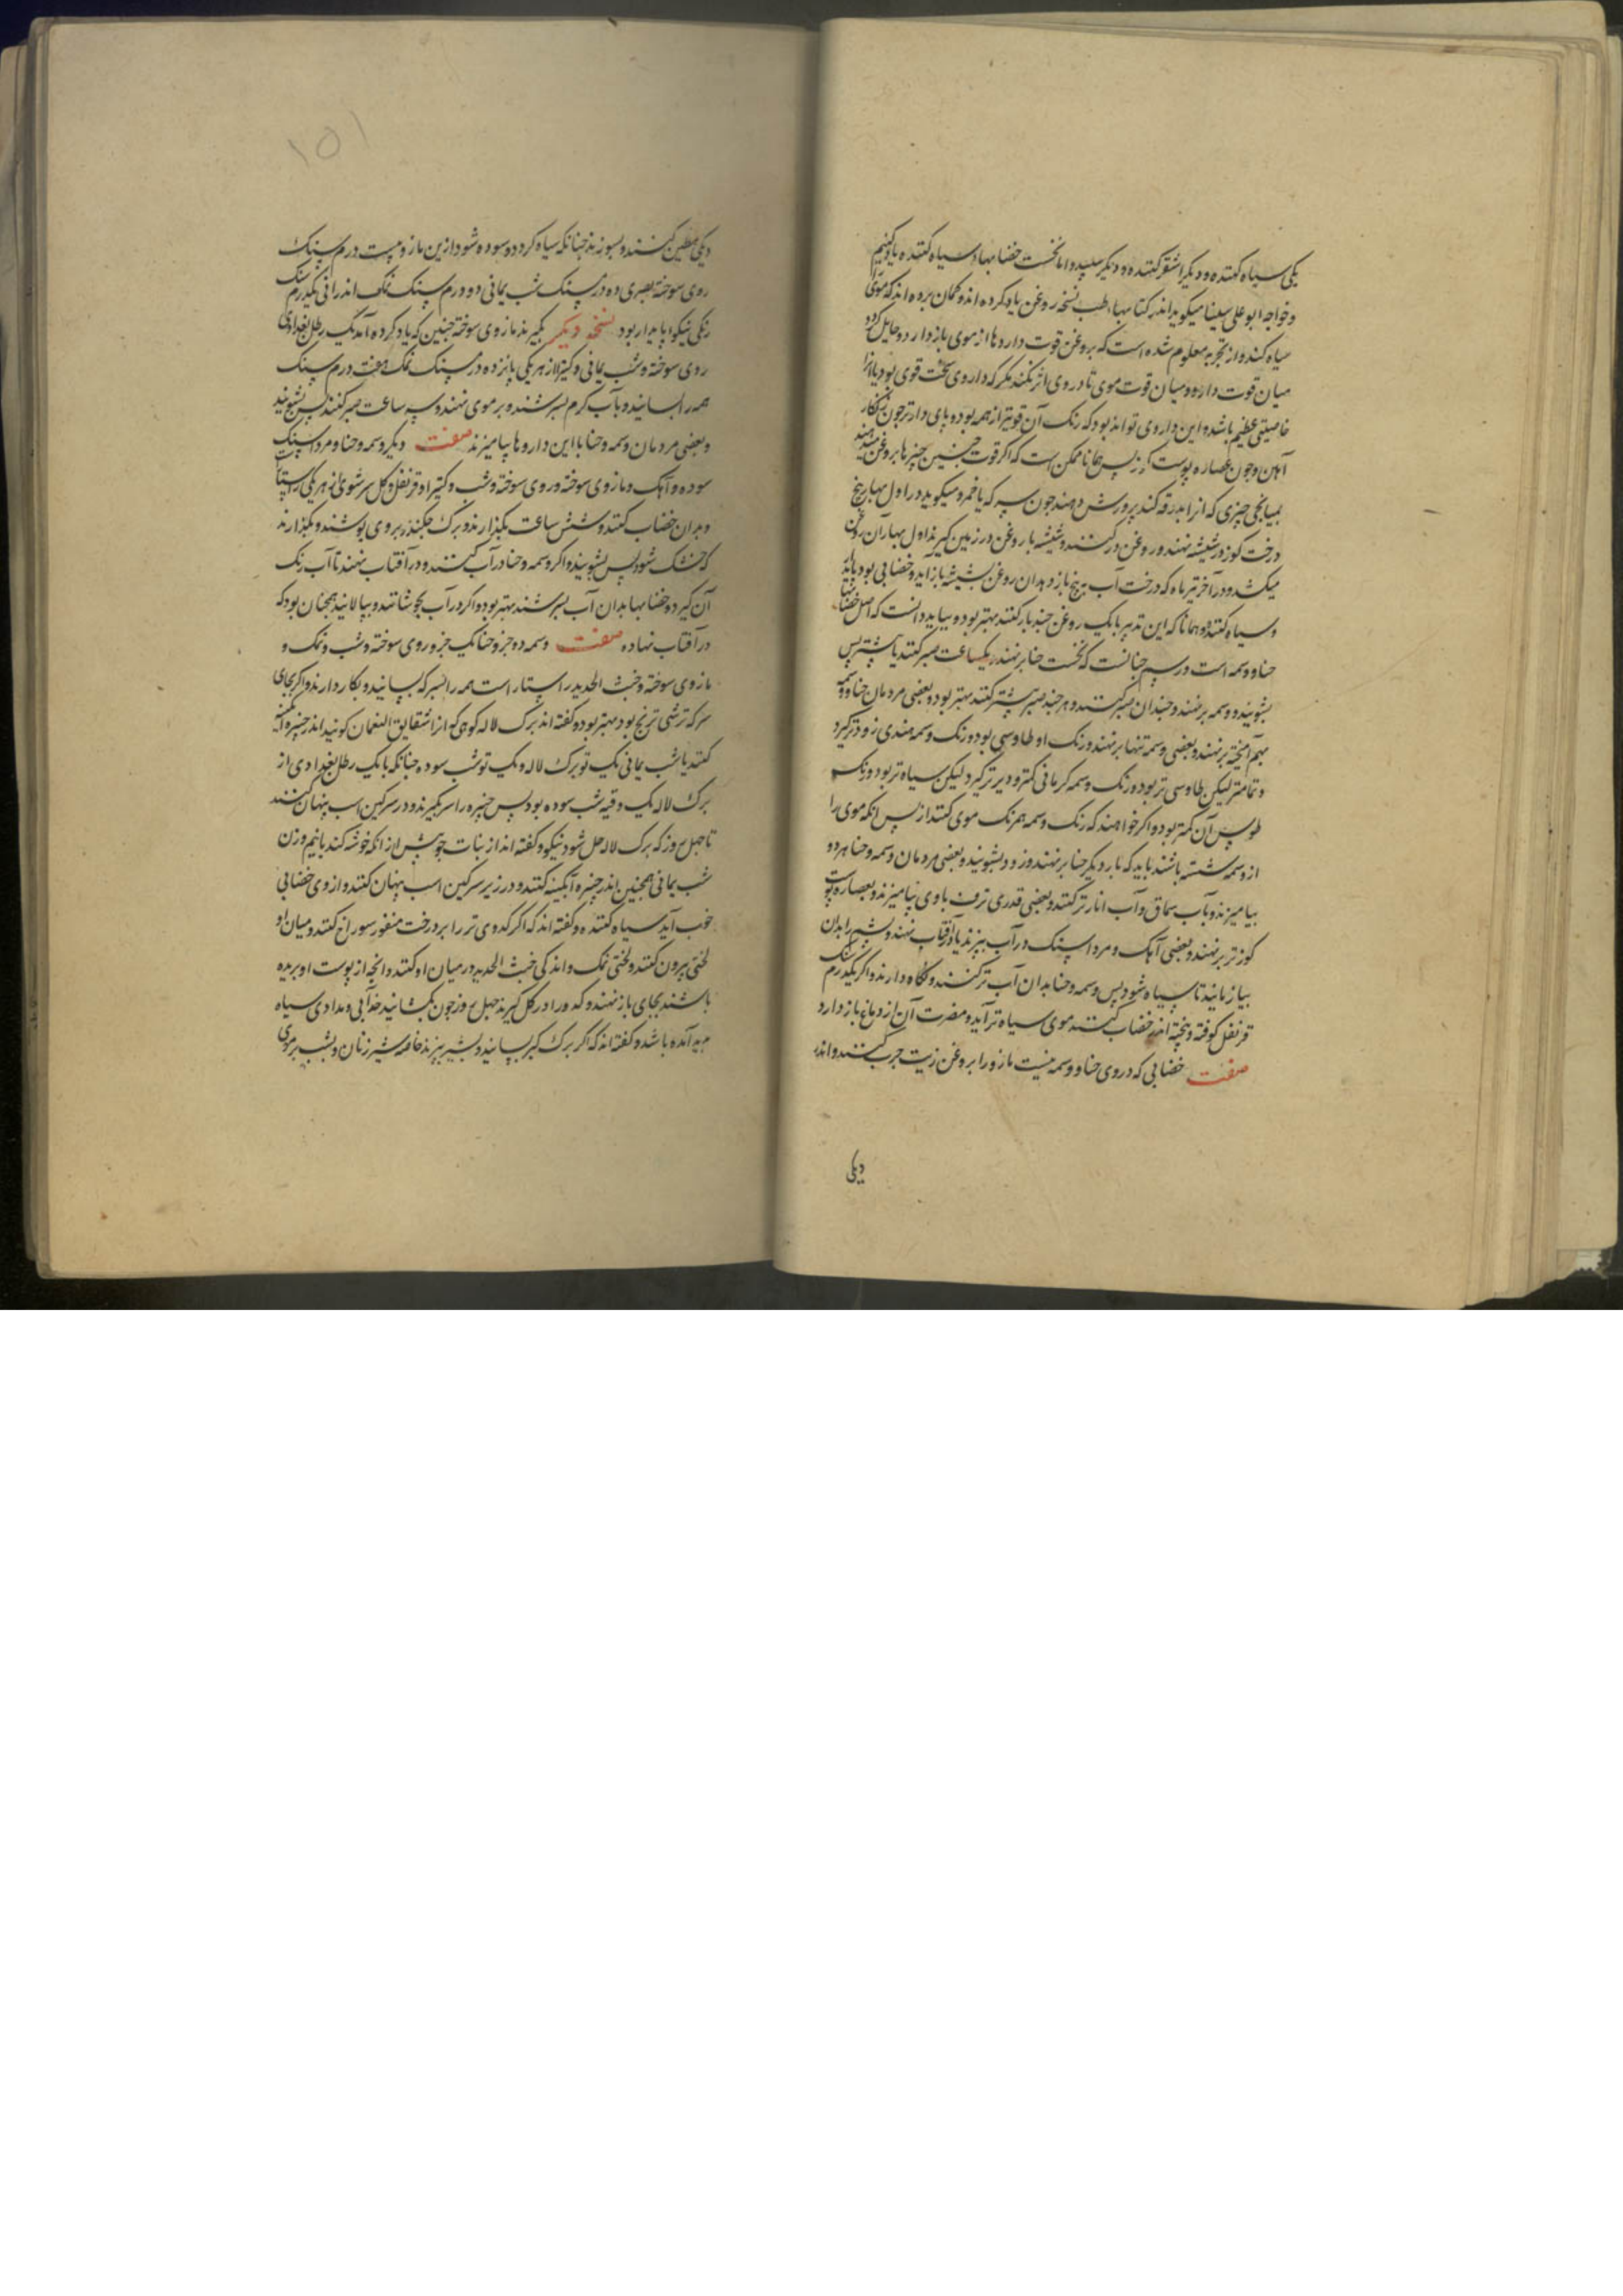 یکی سیاه کننده و دیگر اشقر کننده و دیگر سپید و اما نخست خضابهاء سیاه کننده یاد کنیم
و خواجه ابو علی سینا میکوید اندر کتابهاء طب نسخه روغن یاد کرده اند و کمان برده اند که موی
سیاه کند و از تجربه معلوم شده است که روغن قوت داروها از موی باز دارد و حایل کردد
میان قوت دارو و میان قوت موی تا در وی اثر نکند مکر که داروی سخت قوی بود یا انرا
خاصیتی عظیم باشد و این داروی تواند بود که رنک آن قویتر از همه بود و پای دارتر چون زنکار
آهن و چون عصاره پوست کوز پس همانا ممکن است که اکر قوت چنین چیزها بروغن دهند
بمیانجی چیزی که انرا بدرقه کند پرورش دهند چون سرکه یا خمر و میکوید در اول بهار بیخ
درخت کوز در شیشه نهند و روغن در کنند و شیشه با روغن در زمین کیرند اول بهار آن روغن
میکشد و در آخر تیر ماه که درخت آب بیرنج باز دهد ان روغن بشیشه باز آید و خضابی بود پاینده
و سیاه کننده و همانا که این تدبیر با یک روغن چند بار کنند بهتر بود و بباید دانست که اصل خضابها
حنا و وسمه است و رسم چنانست که نخست حنا برنهند و یکساعت صبر کنند یا بیشتر پس
بشویند و وسمه برنهند و چندان صبر کنند و هر چند صبر بیشتر کنند بهتر بود و بعضی مردمان حنا و وسمه
بهم آمیخته برنهند و بعضی وسمه تنها برنهند و رنک او طاوسی بود و رنک وسمه هندی زودتر کیرد
و تمامتر لیکن طاوسی تر بود و رنک وسمه کرمانی کمتر و دیرتر کیرد لیکن سیاه تر بود و رنک
طوس آن کمتر بود و اکر خواهند که رنک وسمه همرنک موی کنند از پس انکه موی را
از وسمه شسته باشند باید که بار دیکر حنا برنهند و زود بشویند و بعضی مردمان وسمه و حنا هر دو
بیامیزند و بآب سماق و آب انار تر کنند و بعضی قدری ترف با وی بیامیزند و بعصاره پوست
کوز تر برنهند و بعضی آهک و مرداسنک در آب بپزند یا در آفتاب نهند و پشم را بدان
بیازمایند تا سیاه شود پس وسمه و حنا بدان آب تر کنند و نکاه دارند و اکر یکدرم سنک
قرنفل کوفته و پخته اندر خضاب کنند موی سیاه تر آید و مضرت آن از دماغ باز دارد
صفت خضابی که در وی حنا و وسمه نیست مازو را بروغن زیت چرب کنند و اندر
دیکی
۱۵۱
دیکی مطین کنند و بسوزند چنانکه سیاه کردد و سوده شود ازین مازو بیست درم سنک
روی سوخته بصری ده درم سنک شب یمانی دو درم سنک نمک اندرانی یکدرم سنک
رنکی نیکو و پایدار بود نسخه دیکر بکیرند مازوی سوخته چنین که یاد کرده آمد یک رطل بغدادی
روی سوخته و شب یمانی و کتیرا از هر یکی پانزده درم سنک نمک هفت درم سنک
همه را بسایند و بآب کرم بسرشند و بر موی نهند و سه ساعت صبر کنند پس بشویند
و بعضی مردمان وسمه و حنا با این داروها بیامیزند صفت دیکر وسمه و حنا و مرداسنک
سوده و آهک و مازوی سوخته و روی سوخته و شب و کتیرا و قرنفل و کل سرشوی از هر یکی راستاراست
و بدان خضاب کنند و شش ساعت بکذارند و برک چکندر بر وی پوشند و نکذارند
که خشک شود پس بشویند و اکر وسمه و حنا در آب کنند و در آفتاب نهند تا آب رنک
آن کیرد و خضابها بدان آب بسرشند بهتر بود و اکر در آب بجوشانند و بپالایند همچنان بود که
در آفتاب نهاده صفت وسمه دو جزو حنا یک جزو روی سوخته و شب و نمک و
مازوی سوخته و خبث الحدید راستاراست همه را بسرکه بسایند و بکار دارند و اکر بجای
سرکه ترشی ترنج بود بهتر بود و کفته اند برک لاله کوهی که انرا شقایق النعمان کویند اندر خنبره آبکینه
کنند با شب یمانی یک تو برک لاله و یک تو شب سوده چنانکه با یک رطل بغدادی از
برک لاله یک وقیه شب سوده بود پس خنبره را سر بکیرند و در سرکین اسب پنهان کنند
تا چهل روز که برک لاله حل شود نیکو و کفته اند از نبات جو پیش از انکه خوشه کند با نیم وزن
شب یمانی همچنین اندر خنبره آبکینه کنند و در زیر سرکین اسب پنهان کنند و از وی خضابی
خوب آید سیاه کننده و کفته اند که اکر کدوی تر را بر درخت منقور سوراخ کنند و میان او
لختی بیرون کنند و لختی نمک و اندکی خبث الحدید در میان او کنند و انچه از پوست او بریده
باشند بجای باز نهند و کدو را در کل کیرند چهل روز چون بکشایند خدآبی و مدادی سیاه
پدید آمده باشد و کفته اند که اکر برک کبر بسایند و بشیر بپزند خاصه شیر زنان و بشب بر موی